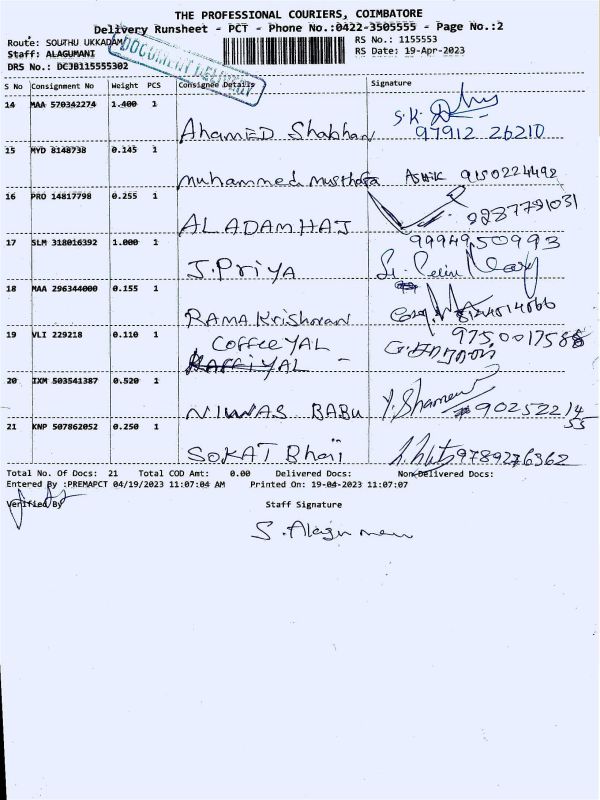 THE PROFESSIONAL COURIERS, COIMBATORE
Delivery Runsheet - PCT - Phone No.:0422-3505555 - Page No.:2
Route: SOUTHU UKKADAM
RS No.: 1155553
Staff: ALAGUMANI
RS Date: 19-Apr-2023
DRS No.: DCJB115555302
DOCUMENT DELIVERY
S No Consignment No Weight PCS Consignee Details Signature
14 MAA 570342274 1.400 1
Ahamed Shabhan S.K. 97912 26210
15 MYD 8148738 0.145 1
muhammed musthafa Ashik 9150224492
16 PRO 14817798 0.255 1
ALADAM HAJ 9287791031
17 SLM 318016392 1.000 1 9994950993
J.Priya
18 MAA 296344000 0.155 1
RAMA Krishnan
19 VLI 229218 0.110 1 9750017588
Coffee YAL
20 IXM 503541387 0.520 1
NIWAS BABU Y. Shameem 9025221455
21 KNP 507862052 0.250 1
SOKAT Bhaii 9789276362
Total No. Of Docs: 21 Total COD Amt: 0.00 Delivered Docs: Non Delivered Docs:
Entered By :PREMAPCT 04/19/2023 11:07:04 AM Printed On: 19-04-2023 11:07:07
Verified By Staff Signature
S. Alagumani